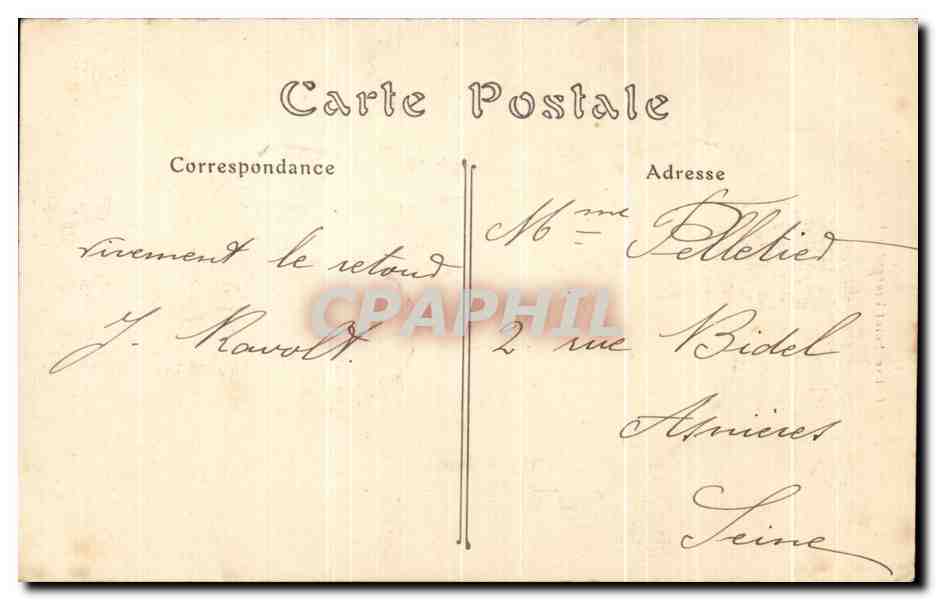 Carte Postale
Correspondance
vivement le retour
J. Ravolt.
Adresse
Mme Pelletier
2 rue Bidel
Asnières
Seine
CPAPHIL